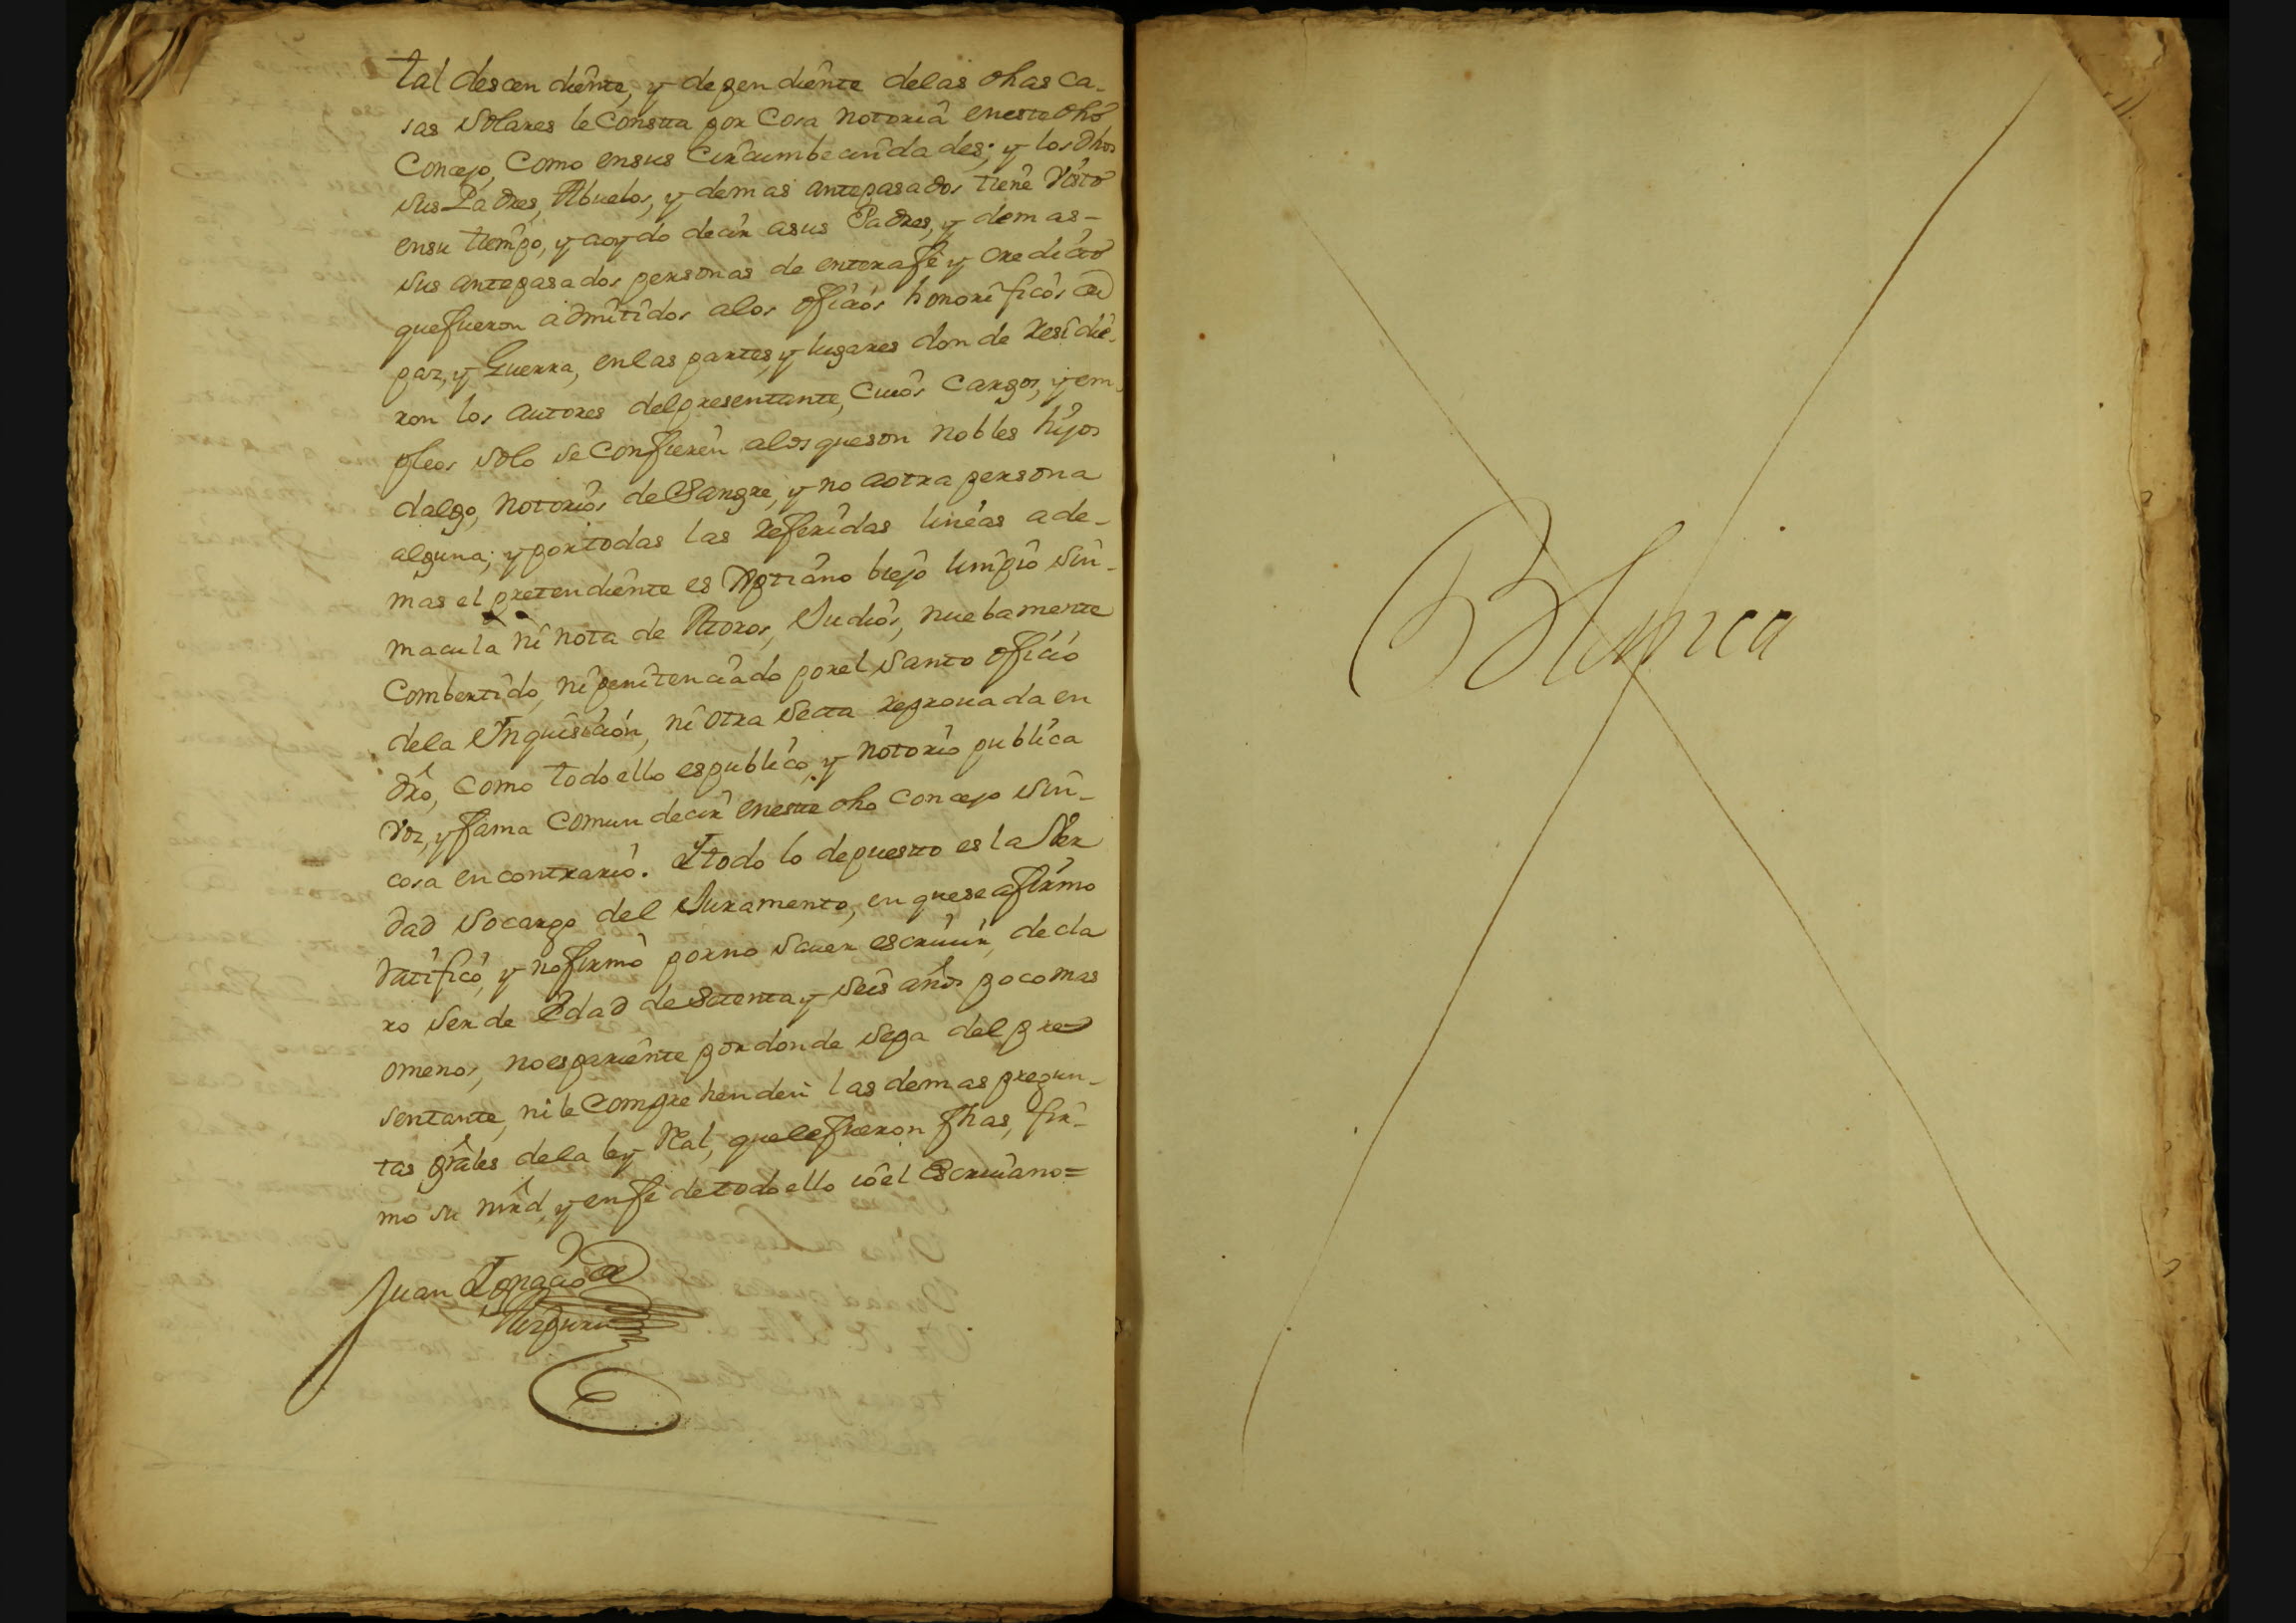 tal descendiente, y dependiente delas dhas ca-
sas Solares le Consta por Cosa notoria eneste dho
Concejo, Como ensus Circumbecindades; y los dhos
sus Padres, Abuelos, y demas antepasados tiene visto
ensu tiempo, y aoydo decir asus Padres, y demas-
sus antepasados personas de enterafe y credicto
quefueron admitidos alos oficios honorificos de
paz, y Guerra, enlas partes, y lugares donde Residie-
ron los autores delpresentante, Cuios Cargos, y em-
pleos solo se Confieren alosqueson nobles hijos
dalgo, notorios deSangre, y no aotra persona
alguna; y portodas las Referidas lineas ade-
mas el pretendiente es Xptiano biejo limpio sin-
macula ni nota de Moros, Judios, nuebamente
Combertido, ni penitenciado porel Santo oficio
dela Inquisicion, ni otra Secta reprouada en
dro, Como todoello espublico, y notorio publica
voz, y fama Comun decir eneste dho concejo sin-
cosa encontrario. Y todo lo depuesto es la Ver
dad Socargo del Juramento, en quese afirmo
Ratifico, y nofirmo porno Sauer escriuir, decla
ro Ser de Edad de Setenta y Seis años pocomas
omenos, noespariente pordonde Sepa del pre
sentante, ni le Comprehenden las demas pregun-
tas grâles dela ley Real, quelefueron fhas, fir-
mó su mrd, y enfe detodoello io el Escriuano=
Juan Ygnacio de
Blanca